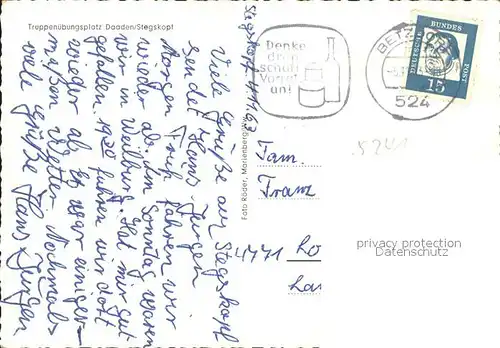 Truppenübungsplatz Daaden/Stegskopf
Stegskopf, 4.11.63
Viele Grüße aus Stegskopf
sendet Hans-Jürgen
Morgen Früh fahren wir
wieder ab. Am Sonntag waren
wir in Weilburg. Hat mir gut
gefallen. 19³⁰ fuhren wir dort
wieder ab. Es war einiger-
maßen Wetter. Nochmals
viele Grüße Hans-Jürgen
Foto Röder, Marienberg
Denke
dran
schütz
Vorrat
an!
BETZ
524
DEUTSCHE BUNDESPOST
15
5241
Fam.
Franz
4771 Lo
La
privacy protection
Datenschutz